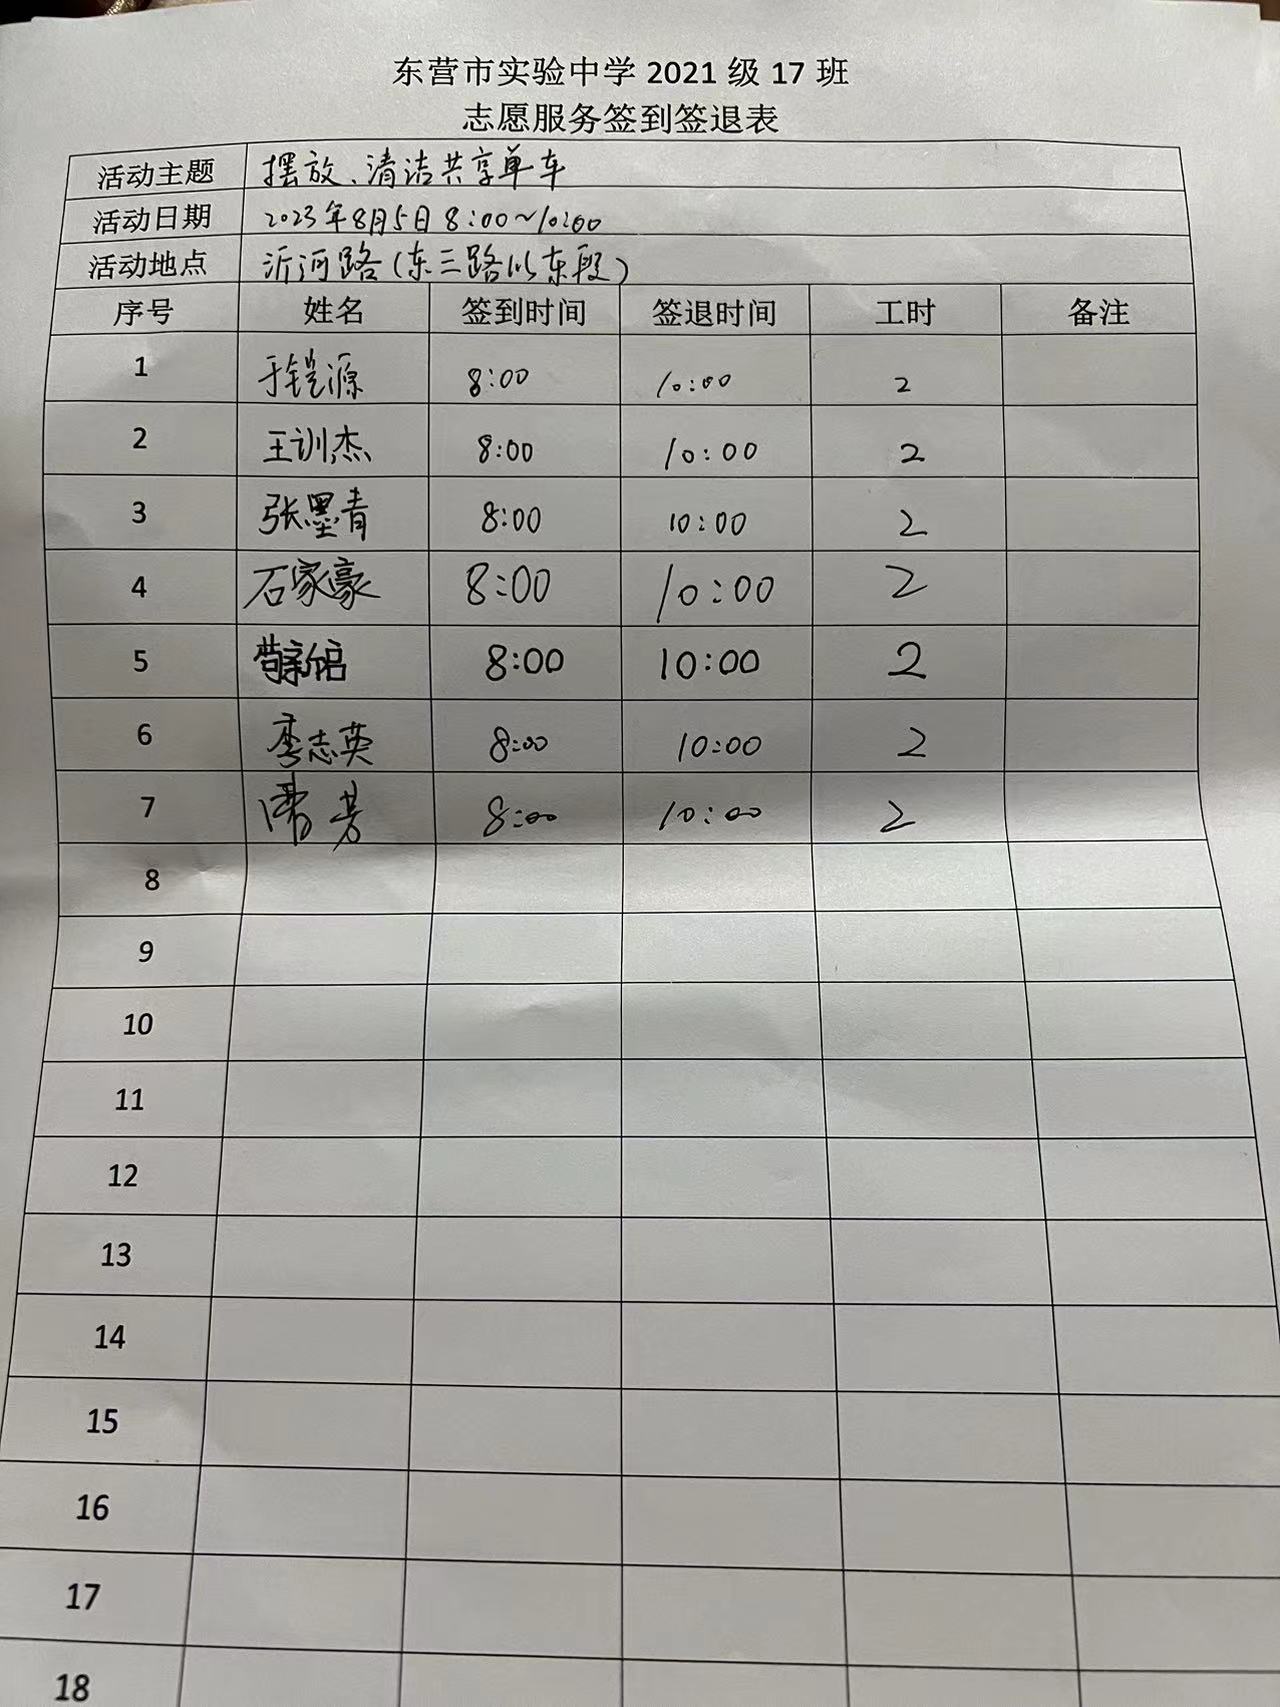 东营市实验中学 2021 级 17 班
志愿服务签到签退表
活动主题 摆放、清洁共享单车
活动日期 2023年8月5日 8:00~10:00
活动地点 沂河路(东三路以东段)
序号 姓名 签到时间 签退时间 工时 备注
1 于铠源 8:00 10:00 2
2 王训杰 8:00 10:00 2
3 张墨青 8:00 10:00 2
4 石家豪 8:00 10:00 2
5 8:00 10:00 2
6 李志英 8:00 10:00 2
7 8:00 10:00 2
8
9
10
11
12
13
14
15
16
17
18